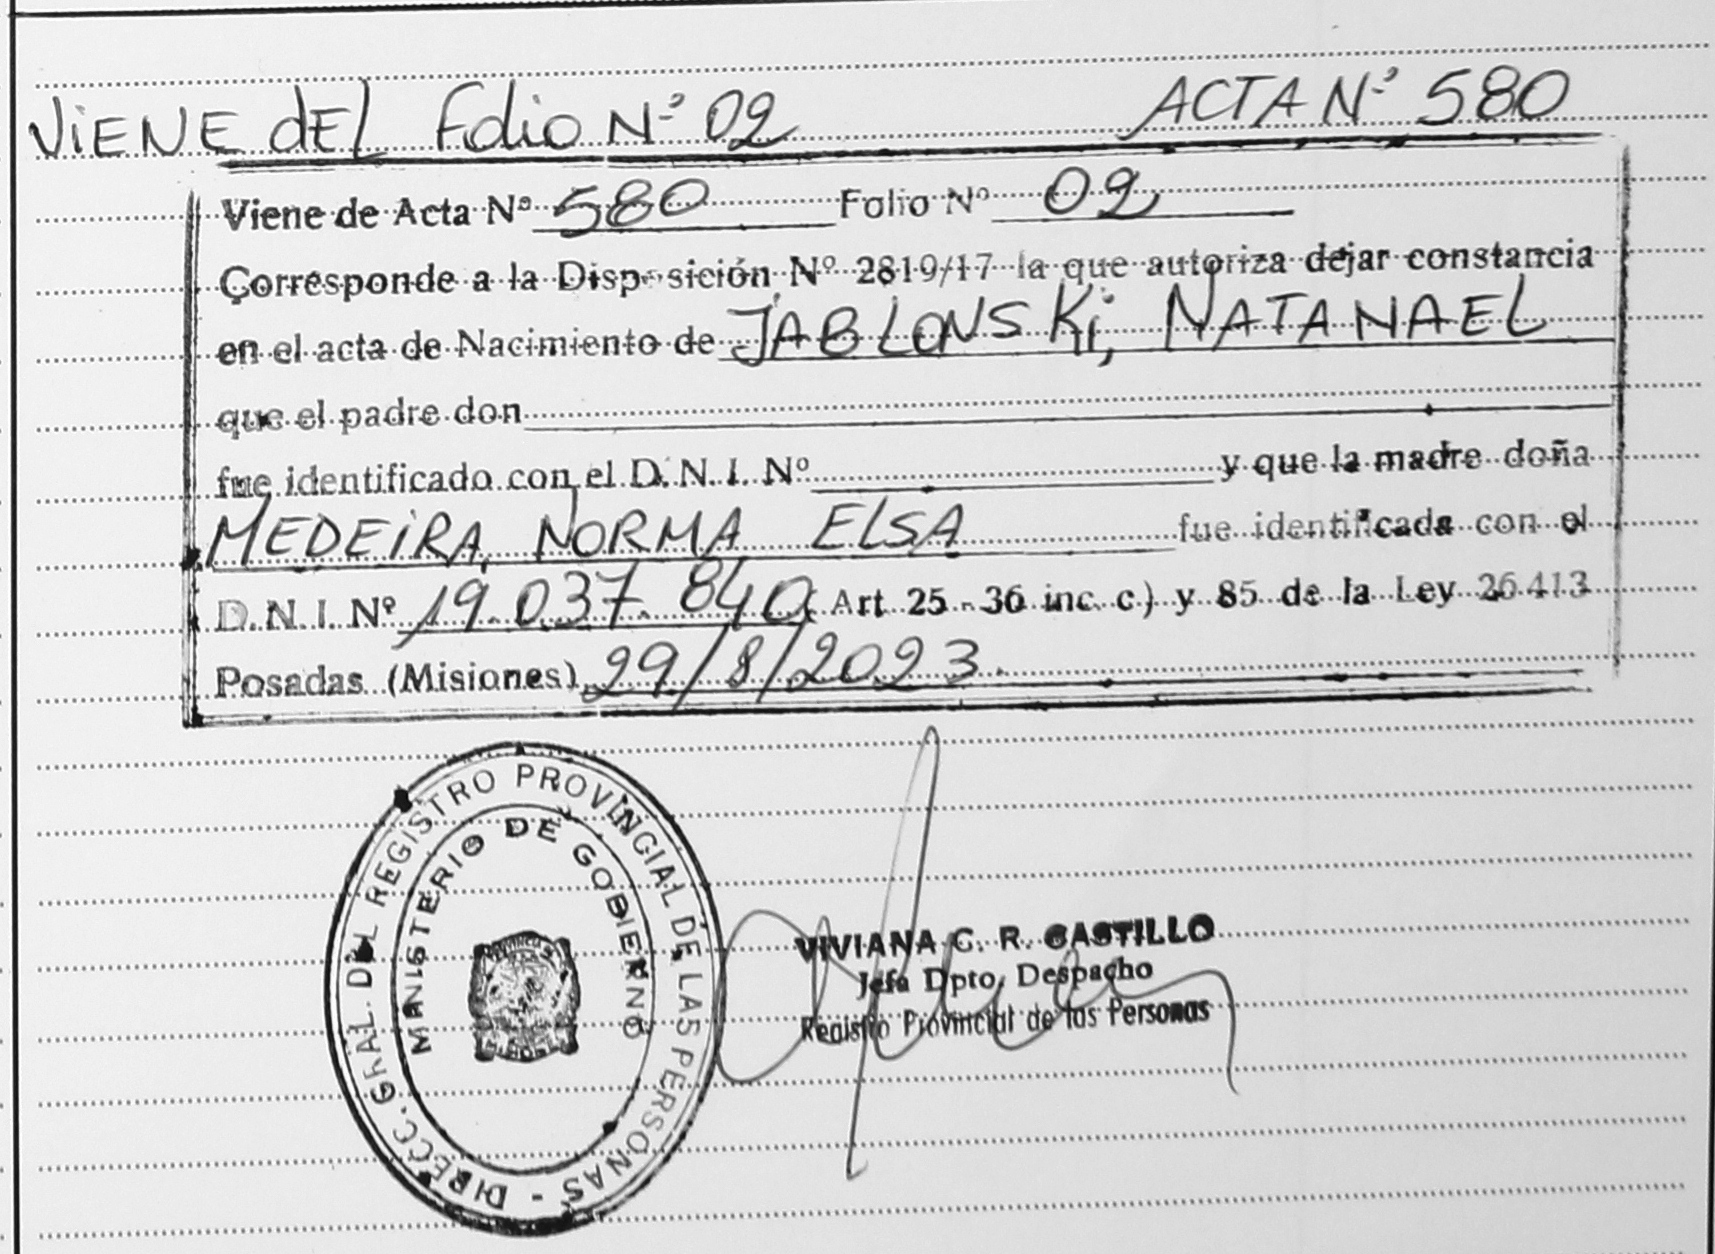 VIENE DEL Folio Nº 02 ACTA Nº 580
Viene de Acta Nº 580 Folio Nº 02
Corresponde a la Disposición Nº 2819/17 la que autoriza dejar constancia
en el acta de Nacimiento de JABLONSKI, NATANAEL
que el padre don
fue identificado con el D.N.I. Nº y que la madre doña
MEDEIRA, NORMA ELSA fue identificada con el
D.N.I. Nº 19.037.840 (Art 25-36 inc. c) y 85 de la Ley 26413
Posadas (Misiones), 29/8/2023.
DIRECC. GRAL. DEL REGISTRO PROVINCIAL DE LAS PERSONAS -
MINISTERIO DE GOBIERNO
VIVIANA C. R. CASTILLO
Jefa Dpto. Despacho
Registro Provincial de las Personas